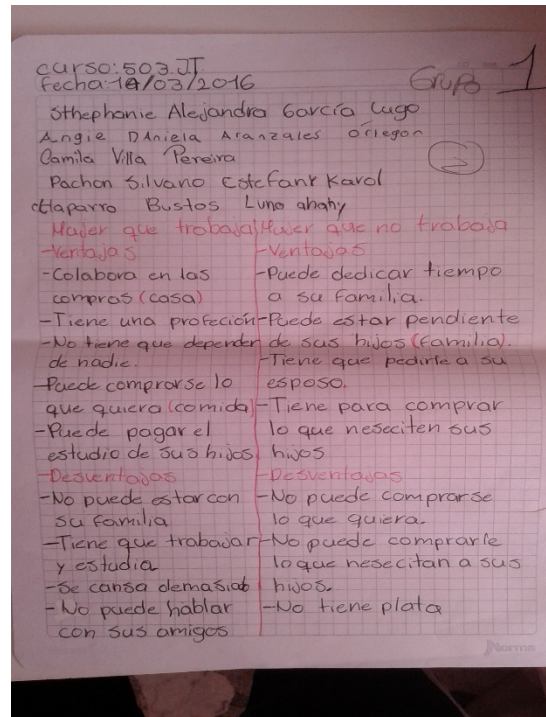 curso: 503.JT
Fecha: 14/03/2016
Grupo 1
Sthephanie Alejandra García Lugo
Angie DAniela Aranzales Orregon
Camila Villa Pereira
Pachon Silvano Estefany Karol
Chaparro Bustos Luno ahahy
Mujer que trabaja
Ventajas
-Colabora en las
compras (casa)
-Tiene una profeción
-No tiene que depender
de nadie.
-Puede comprarse lo
que quiera (comida)
-Puede pagar el
estudio de sus hijos
-Desventajas
-No puede estar con
su familia
-Tiene que trabajar
y estudia
-Se cansa demasiado
-No puede hablar
con sus amigos
Mujer que no trabaja
-Ventajas
-Puede dedicar tiempo
a su familia.
-Puede estar pendiente
de sus hijos (familia).
-Tiene que pedirle a su
esposo.
-Tiene para comprar
lo que neseciten sus
hijos
-Desventajas
-No puede comprarse
lo que quiera.
-No puede comprarle
lo que nesecitan a sus
hijos.
-No tiene plata
Norma